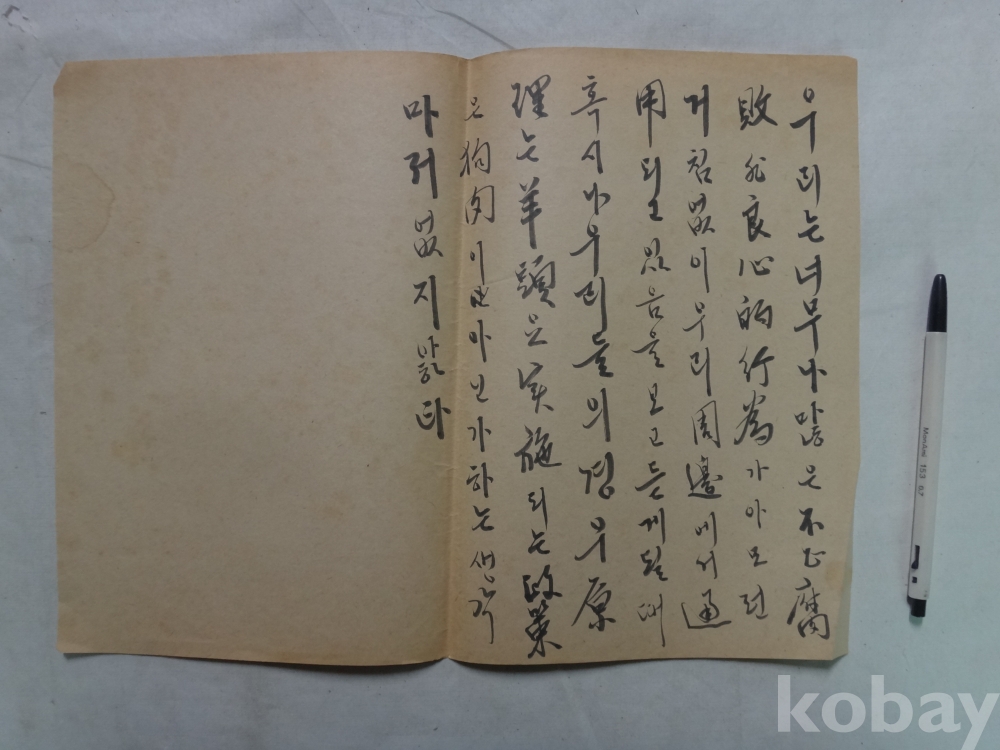 우리는 너무나 많은 不正腐
敗 非良心的 行爲가 아모런
거침없이 우리 周邊에서 通
用되고 있음을 보고 듣게 될 때
혹시나 우리들의 경우 原
理는 羊頭요 실施되는 政策
은 狗肉이 아닌가 하는 생각
마저 없지 않다
Monami 153 0.7
kobay